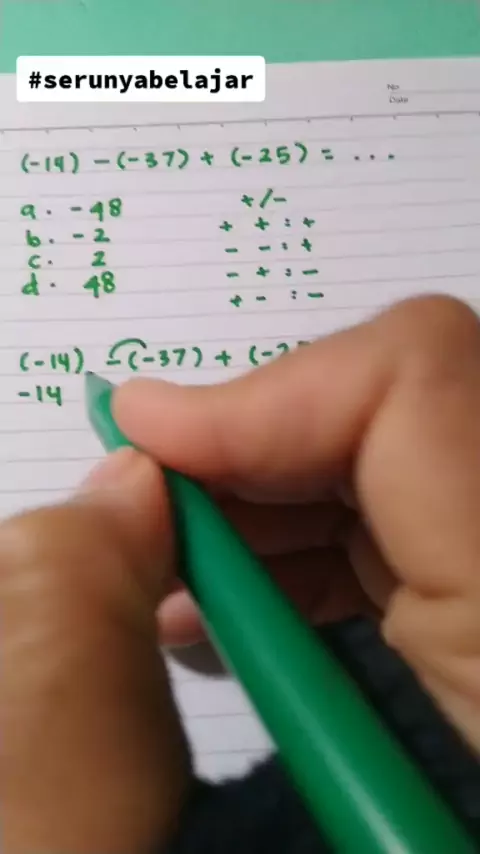 #serunyabelajar
No
Date
(-14) - (-37) + (-25) = ...
a. -48
b. -2
c. 2
d. 48
+/-
+ + : +
- - : +
- + : -
+ - : -
(-14) - (-37) + (-2
-14